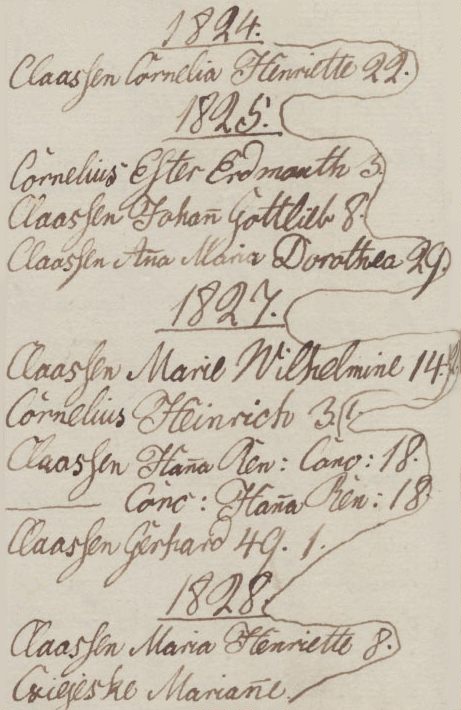 1824.
Claassen Cornelia Henriette 22.
1825.
Cornelius Ester Erdmouth 3.
Claassen Johan̄ Gottlieb 8.
Claassen An̄a Maria Dorothea 29.
1827.
Claassen Marie Wilhelmine 14.
Cornelius Heinrich 3.
Claassen Han̄a Ren: Caro: 18.
——— Caro: Han̄a Ren: 18.
Claassen Gerhard 49. 1.
1828.
Claassen Maria Henriette 8.
Cziejeske Marian̄e.